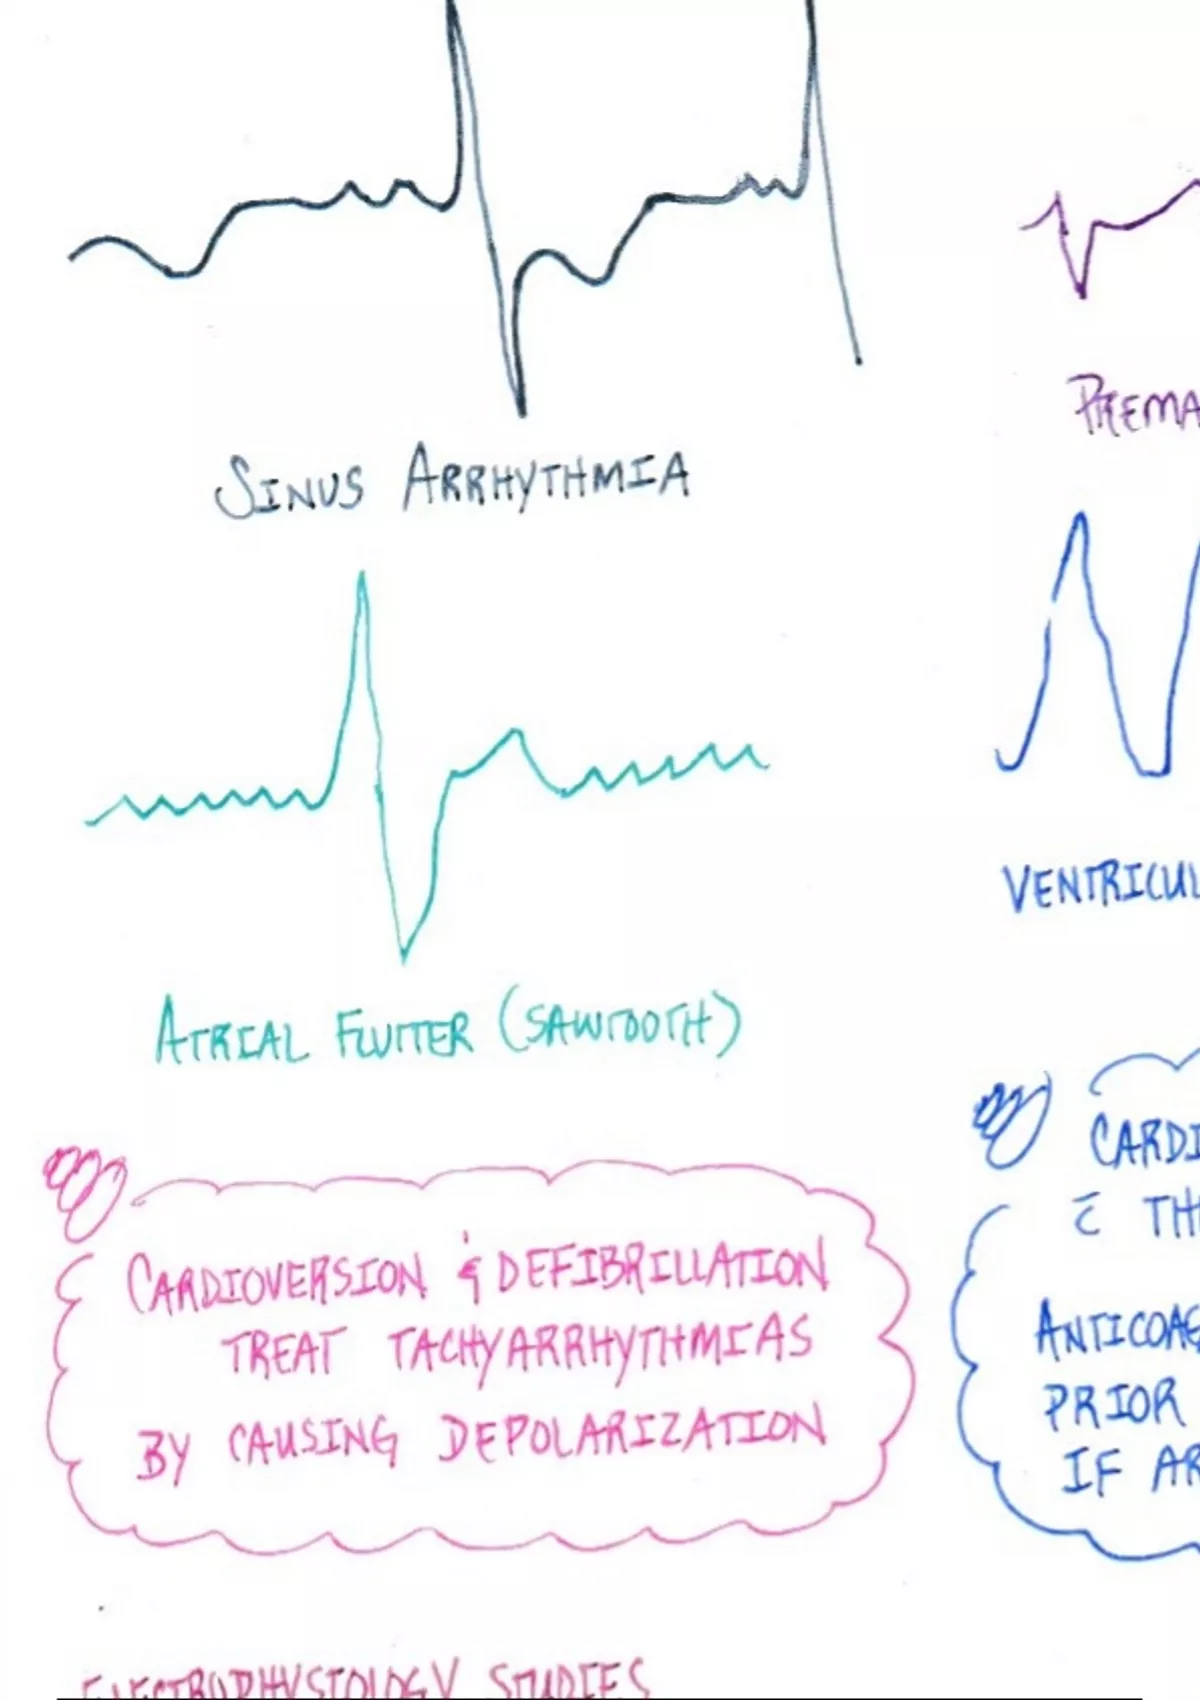 SINUS ARRHYTHMIA
PREMA
ATRIAL FLUTTER (SAWTOOTH)
VENTRICUL
CARDIOVERSION & DEFIBRILLATION
TREAT TACHYARRHYTHMIAS
BY CAUSING DEPOLARIZATION
CARDI
c̄ TH
ANTICOAG
PRIOR
IF AR
ELECTROPHYSIOLOGY STUDIES